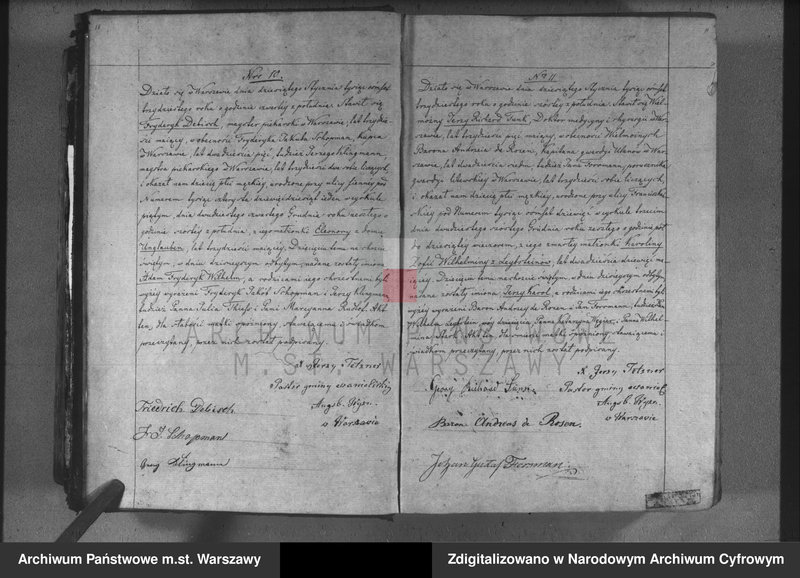 Nro 10.
Działo się w Warszawie dnia dziesiątego Stycznia tysiąc osmset
trzydziestego roku o godzinie czwartej z południa. Stawił się
Fryderyk Debisch, majster piekarski w Warszawie, lat trzydzie-
ści mający, w obecności Fryderyka Jakuba Schopman, kupca
w Warszawie, lat dwadzieścia pięć, tudzież Jerzego Klingmann,
majstra piekarskiego w Warszawie, lat trzydzieści dwa sobie liczących,
i okazał nam dziecię płci męzkiej urodzone przy ulicy
Numerem tysiąc czterysta dziewięćdziesiąt jeden w cyrkule
piątym, dnia dwudziestego czwartego Grudnia roku zeszłego o
godzinie szóstej z południa, z jego małżonki Eleonory z domu
Unglauben, lat trzydzieści mającej. Dziecięciu temu na chrzcie
świętym, w dniu dzisiejszym odbytym, nadane zostały imiona
Adam Fryderyk Wilhelm, a rodzicami jego chrzestnemi byli
wyżej wyrażeni Fryderyk Jakób Schopman i Jerzy Klingmann
tudzież Panna Julia i Pani Maryanna Akt
ten, dla słabości matki opóźniony, stawającemu i świadkom
przeczytany, przez nich został podpisany.
X Jerzy Tetzner
Pastor gminy ewanielickiej
Augsb. Wyzn.
w Warszawie
Friedrich Debisch
F. J. Schopman
Georg Klingmann
No 11
Działo się w Warszawie dnia dziesiątego Stycznia tysiąc osmset
trzydziestego roku o godzinie szóstej z południa. Stawił się Wiel-
możny Jerzy Doktor medycyny i chyrurgii w War-
szawie, lat trzydzieści mający, w obecności Wielmożnych
Barona Andrzeia de Rosen, Kapitana gwardyi Ułanów w War-
szawie, lat dwadzieścia siedm, tudzież Jana Forsmann, porucznika
gwardyi litewskiej w Warszawie, lat trzydzieści sobie liczących,
i okazał nam dziecię płci męzkiej, urodzone przy ulicy Franciszka-
ńskiej pod Numerem tysiąc osmset dziewięć w cyrkule trzecim
dnia dwudziestego szóstego Grudnia roku zeszłego o godzinie pół
do dziesiątej wieczorem, z jego małżonki Karoliny
Zofii Wilhelminy z lat dwadzieścia dziewięć ma-
jącej. Dziecięciu temu na chrzcie świętym, w dniu dzisiejszym odbytym
nadane zostały imiona Jerzy Karol, a rodzicami jego chrzestnemi byli
wyżej wyrażeni Baron Andrzej de Rosen i Jan Forsmann, tudzież
Wilhelm Panna Katarzyna i Panna Wilhel-
mina Akt ten, dla słabości matki opóźniony, stawającemu i
świadkom przeczytany, przez nich został podpisany.
X Jerzy Tetzner
Pastor gminy ewaniel.
Augsb. Wyzn.
w Warszawie
Georg
Baron Andreas de Rosen.
Johan Gustaf Forsman.
ARCHIWUM PAŃSTWOWE
M.ST. WARSZAWY
Archiwum Państwowe m.st. Warszawy
Zdigitalizowano w Narodowym Archiwum Cyfrowym